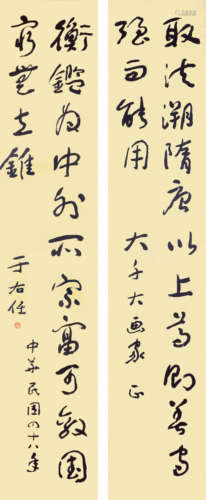 取法溯隋唐以上善守
强而能用
大千大画家 正
衡鑑為中外所宗富可敵國
窮無立錐
于右任
中華民國四十八年